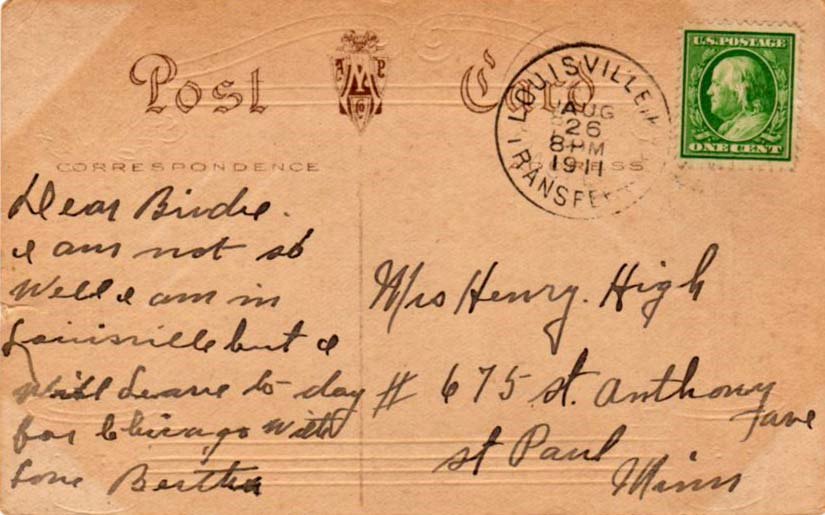 Post Card
A M P
Co
CORRESPONDENCE
LOUISVILLE, K
AUG
26
8 PM
1911
TRANSFER
U.S. POSTAGE
ONE CENT
Dear Birdie.
I am not so
Well I am in
Louisville but I
Will Leave to-day
for Chicago with
Love Bertha
Mrs Henry. High
# 675 St. Anthony
ave
St Paul
Minn